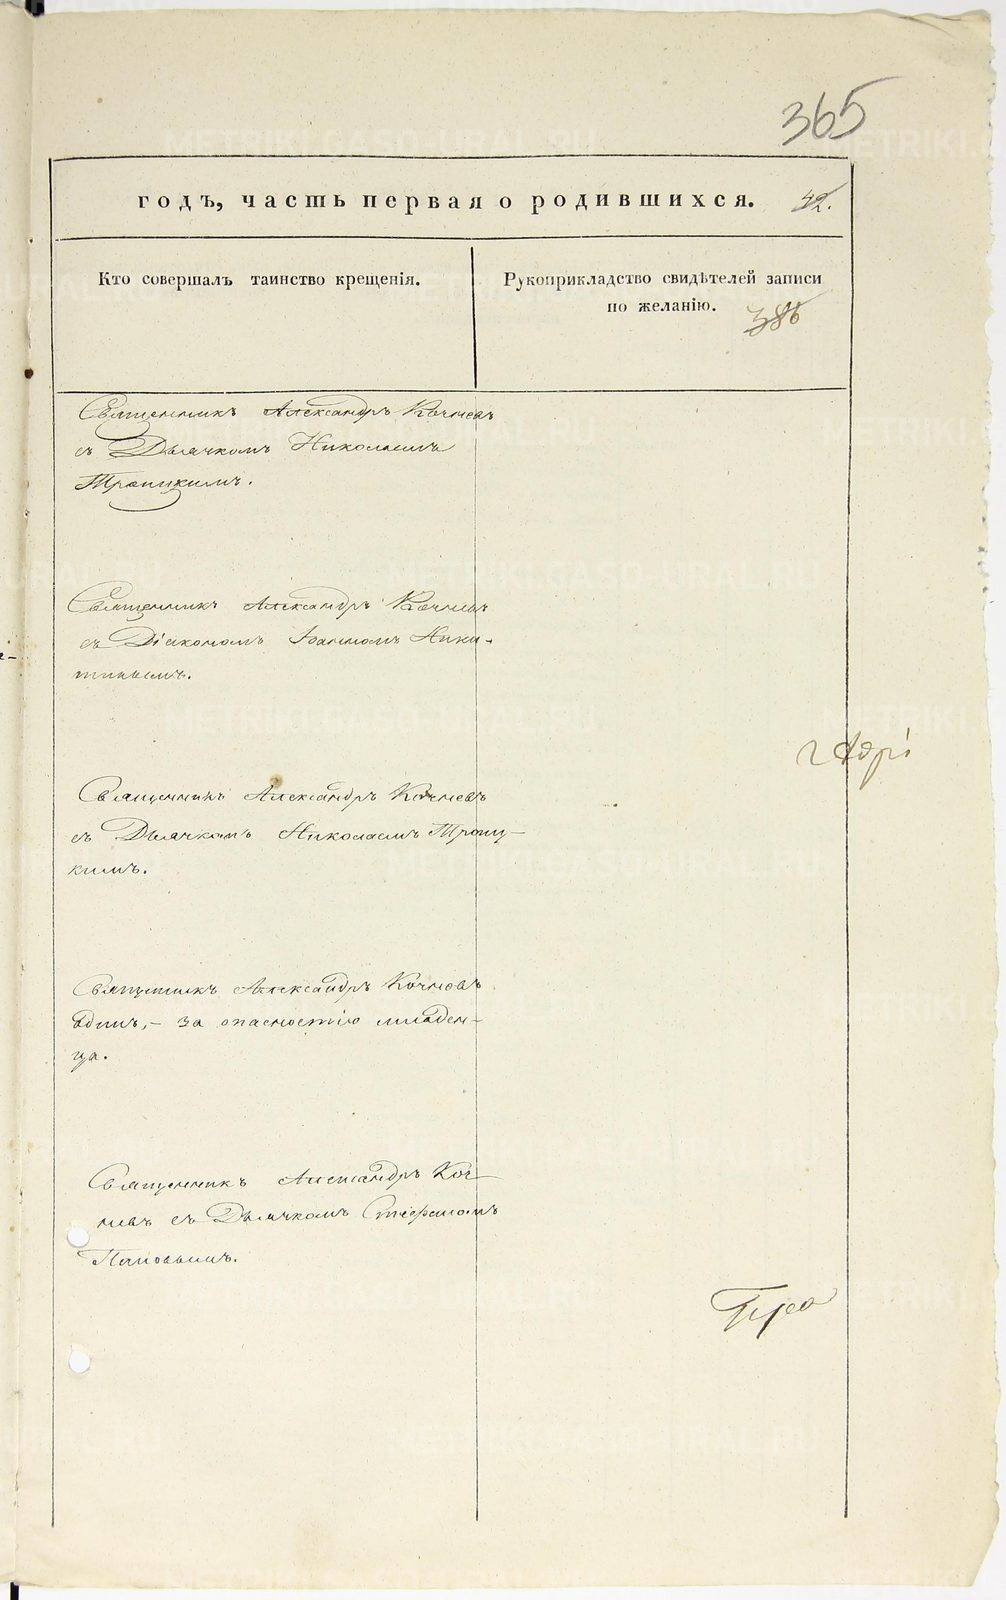 365
годъ, часть первая о родившихся. 42.
Кто совершалъ таинство крещенія.
Рукоприкладство свидѣтелей записи
по желанію.
386
Священникъ Александръ Кочневъ
съ Дьячкомъ Николаемъ
Троицкимъ.
Священникъ Александръ Кочневъ
съ Діакономъ Іоанномъ Ники-
тинымъ.
Священникъ Александръ Кочневъ
съ Дьячкомъ Николаемъ Троиц-
кимъ.
Священникъ Александръ Кочневъ
одинъ, - за опасностію младен-
ца.
Священникъ Александръ Коч-
невъ съ Дьячкомъ Стефаномъ
Поповымъ.
METRIKI.GASO-URAL.RU